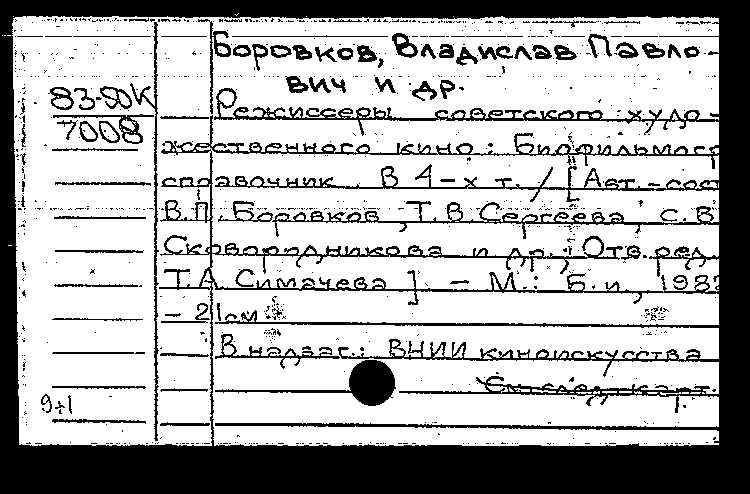 Боровков, Владислав Павло-
вич и др.
83-50К
7008
Режиссеры советского худо-
жественного кино: Биофильмогр
справочник. В 4-х т. / [Авт.-сост
В.П. Боровков, Т.В. Сергеева, С.В.
Сковородникова и др.; Отв. ред.
Т.А. Симачева]. - М.: Б.и., 198
- 21см
В надзаг.: ВНИИ киноискусства
См. след. карт.
9+1
1.